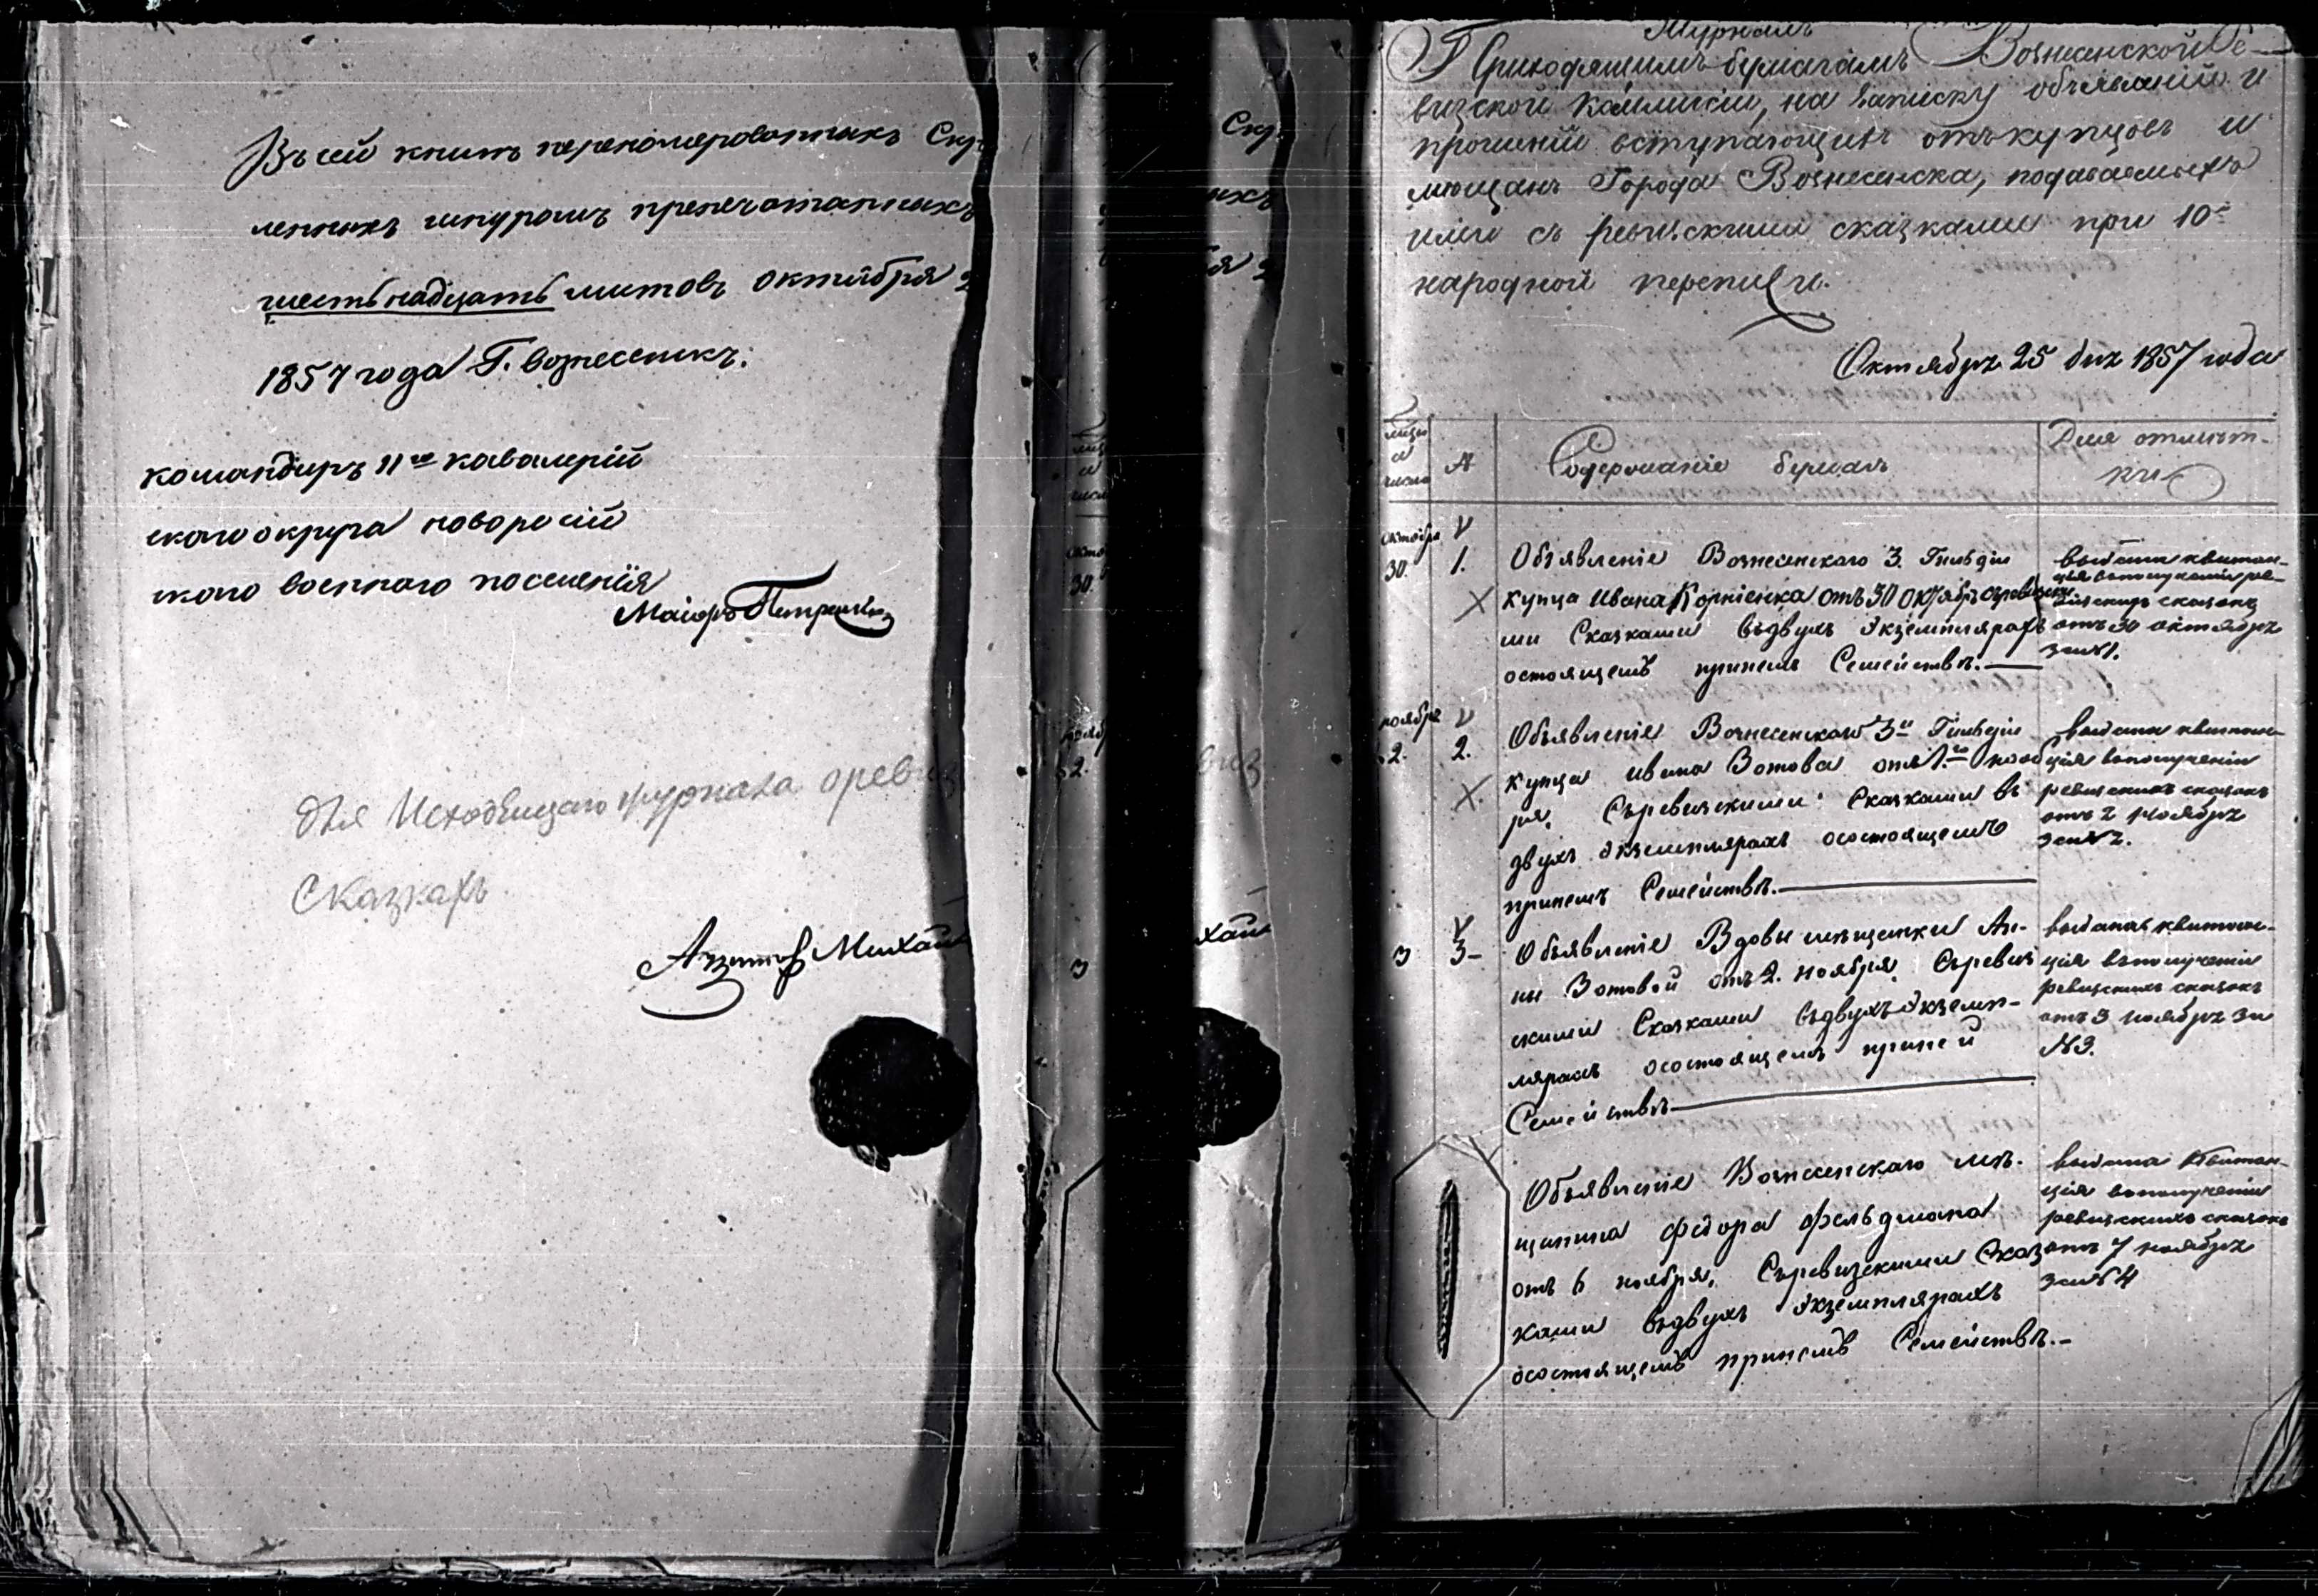 Въ сей книгѣ перекомерованныхъ Скр
ленныхъ шнуромъ препечатанныхъ
шестьнадцать листовъ октября 2
1857 года Г. вознесенскъ.
командиръ 11го кавалерій
скаго округа новоросій
скаго военнаго поселенія
Маіоръ
для Исходящаго журнала оревиз
Сказкахъ
Журналъ
Приходящимъ бумагамъ Вознесенской Ре-
визской Коммисіи, на записку объявленій и
прошеній вступающихъ отъ купцовъ и
мещанъ Города Вознесенска, подаваемыхъ
ими съ ревизскими сказками при 10й
народной переписи.
Октября 25 дня 1857 года
мѣсяц
и
число
№
Содержаніе бумагъ
Для отмѣт-
ки
октября
30.
1.
Объявленіе Вознесенскаго 3. Гильдіи
купца Ивана Корніенка отъ 30 октября съревизски
ми Сказками въдвухъ Экземплярахъ
остоящемъ принемъ Семействѣ.—
выдана квитан-
ція вполученіи ре-
визскихъ сказокъ
отъ 30 октября
за №1.
ноября
2.
2.
Объявленіе Вознесенскаго 3й Гильдіи
купца Ивана Зотова отъ 1.го нояб
ря, Съревизскими Сказками въ
двухъ Экземплярахъ осостоящемъ
принемъ Семействѣ.—
выдана квитан-
ція вполученіи
ревизскихъ сказокъ
отъ 2 ноября
за №2.
3
3-
Объявленіе Вдовы мещанки Ан-
ны Зотовой отъ 2. ноября, Съревиз
скими Сказками въдвухъ Экземп-
лярахъ осостоящемъ приней
Семействѣ—
выдана квитан-
ція вполученіи
ревизскихъ сказокъ
отъ 3 ноября за
№3.
Объявленіе Вознесенскаго мѣ-
щанина Фёдора Фельдмана
отъ 6 ноября, Съревизскими Сказ
ками въдвухъ Экземплярахъ
осостоящемъ принемъ Семействѣ.-
выдана Квитан-
ція вполученіи
ревизскихъ сказокъ
отъ 7 ноября
за №4